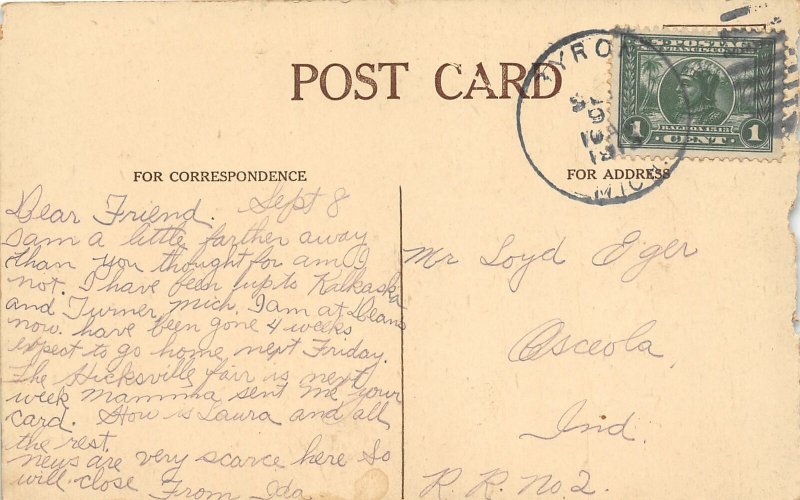 POST CARD
BYRON
MICH.
U.S. POSTAGE
SAN FRANCISCO 1915
BALBOA 1513
1 CENT 1
FOR CORRESPONDENCE
FOR ADDRESS
Dear Friend. Sept 8
I am a little farther away
than you thought for am I
not. I have been up to Kalkaska
and Turner, Mich. I am at Deans
now. have been gone 4 weeks
expect to go home next Friday.
The Hicksville fair is next
week Mamma sent me your
card. How is Laura and all
the rest.
news are very scarce here So
will close From Ida
Mr Loyd Eger
Osceola,
Ind.
R. R. No 2.